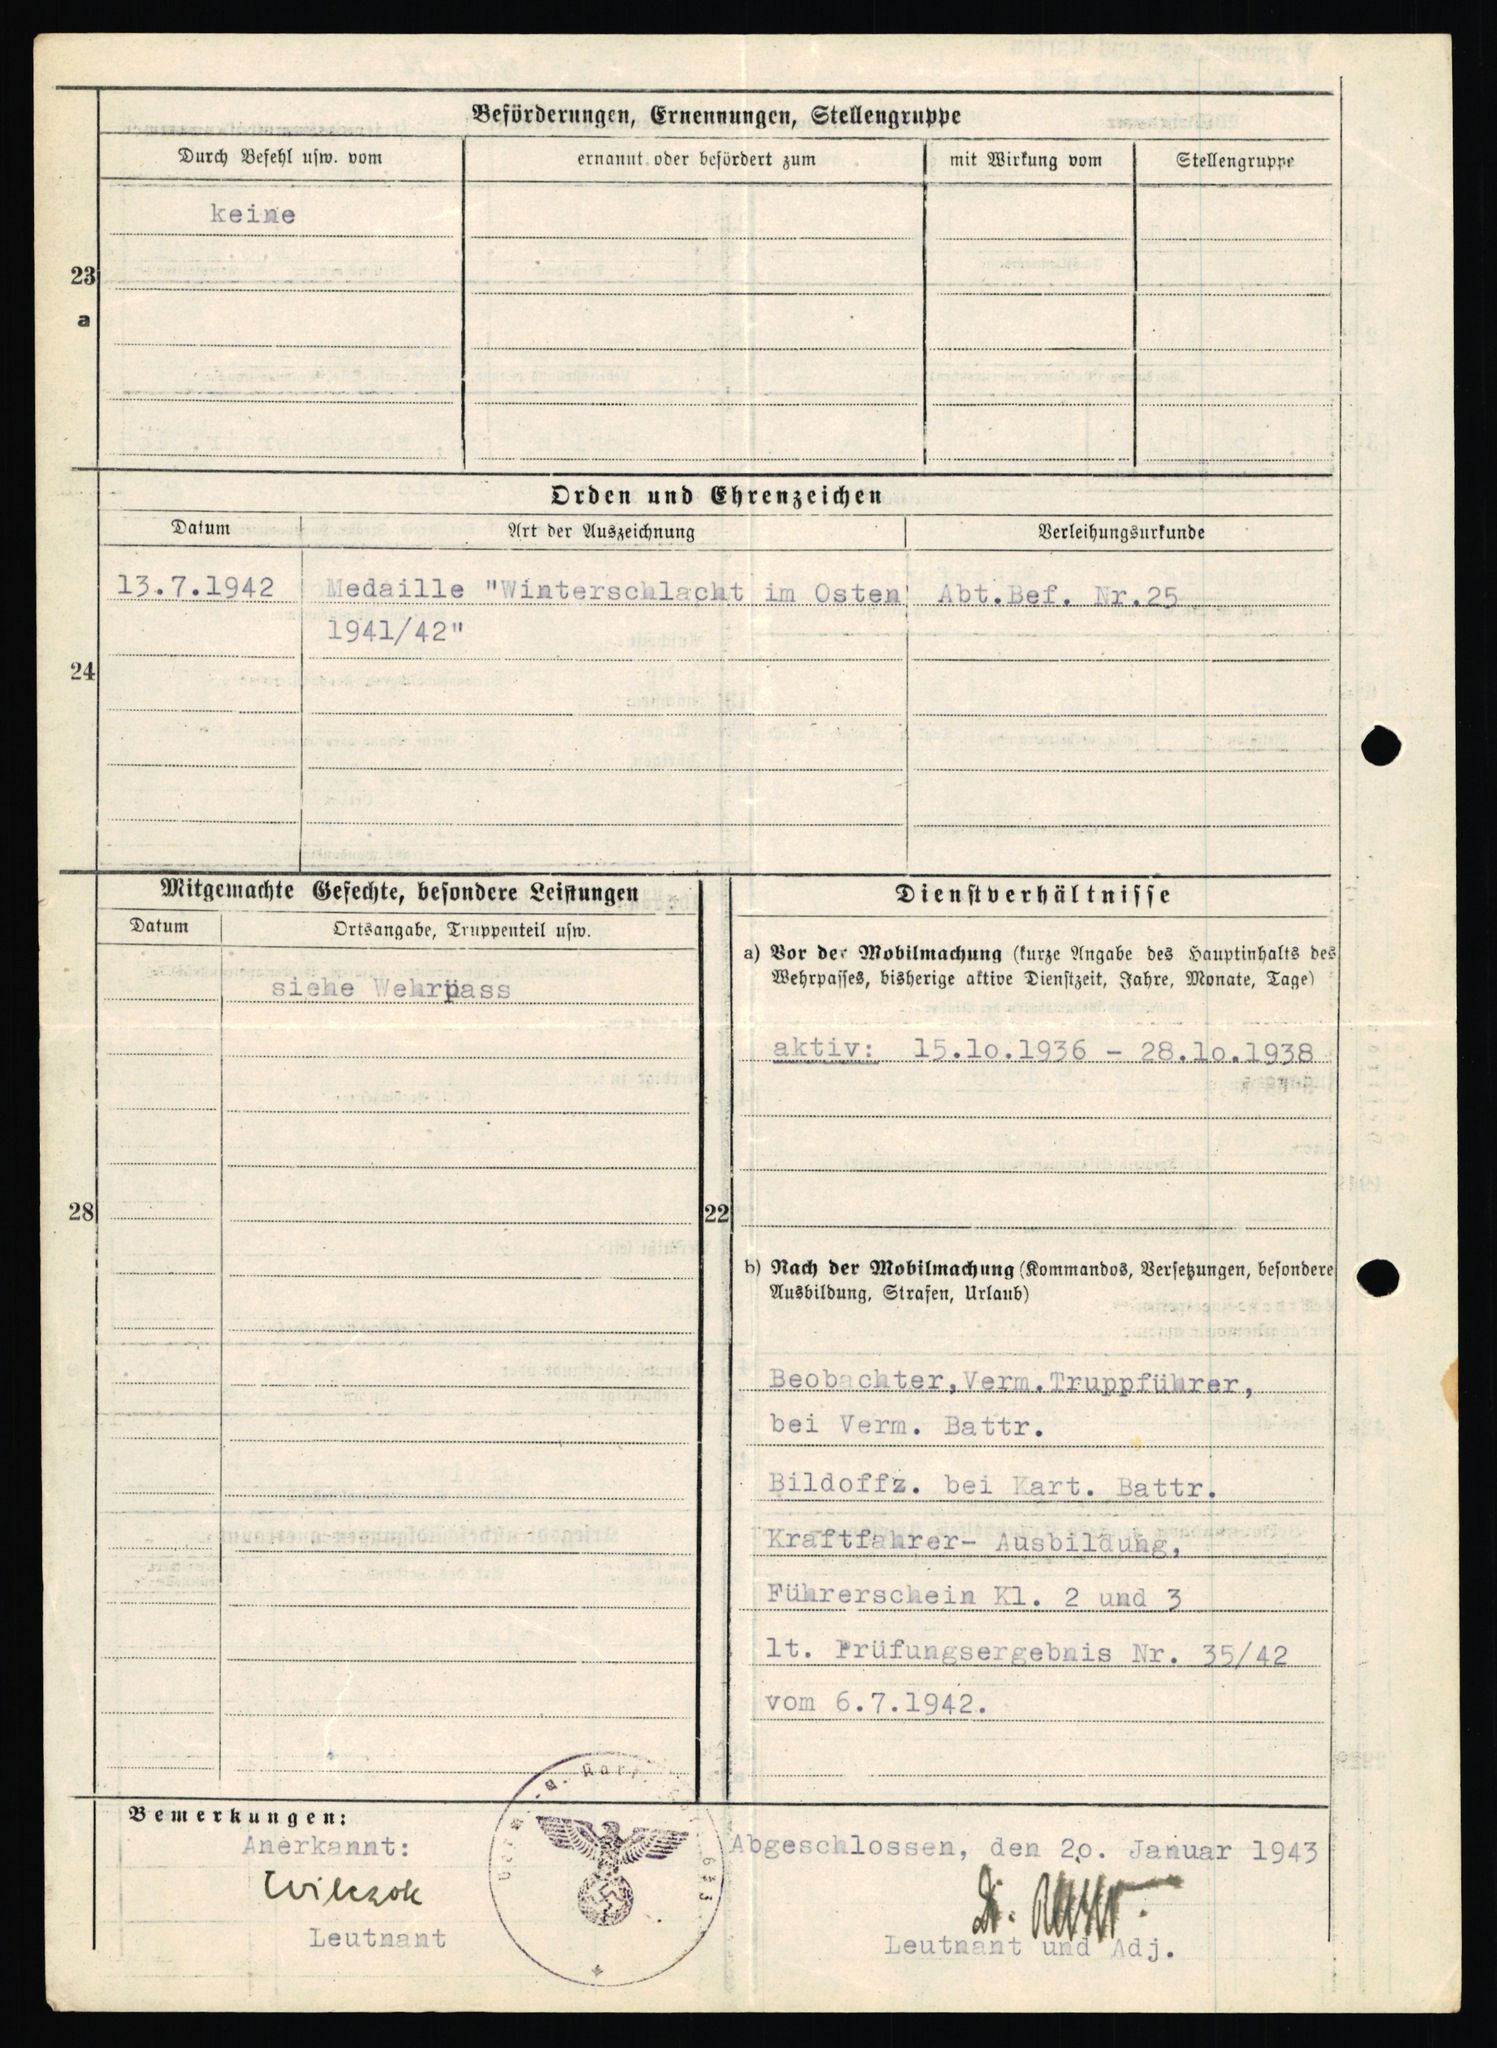 Beförderungen, Ernennungen, Stellengruppe
Durch Befehl usw. vom
ernannt oder befördert zum
mit Wirkung vom
Stellengruppe
keine
23
a
Orden und Ehrenzeichen
Datum
Art der Auszeichnung
Verleihungsurkunde
13.7.1942
Medaille "Winterschlacht im Osten
Abt.Bef. Nr.25
1941/42"
24
Mitgemachte Gefechte, besondere Leistungen
Datum
Ortsangabe, Truppenteil usw.
siehe Wehrpass
28
Dienstverhältnisse
a) Vor der Mobilmachung (kurze Angabe des Hauptinhalts des
Wehrpasses, bisherige aktive Dienstzeit, Jahre, Monate, Tage)
aktiv: 15.10.1936 - 28.10.1938
22
b) Nach der Mobilmachung (Kommandos, Versetzungen, besondere
Ausbildung, Strafen, Urlaub)
Beobachter, Verm.Truppführer,
bei Verm. Battr.
Bildoffz. bei Kart. Battr.
Kraftfahrer- Ausbildung,
Führerschein Kl. 2 und 3
lt. Prüfungsergebnis Nr. 35/42
vom 6.7.1942.
Bemerkungen:
Anerkannt:
Wilczok
Leutnant
Abgeschlossen, den 20. Januar 1943
Dr.
Leutnant und Adj.